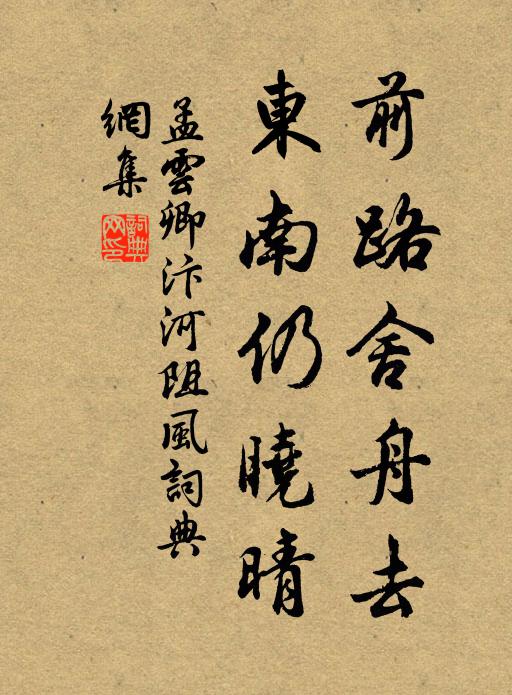 前路舍舟去
東南仍曉晴
孟雲卿汴河阻風詞典
網集
詞典网印